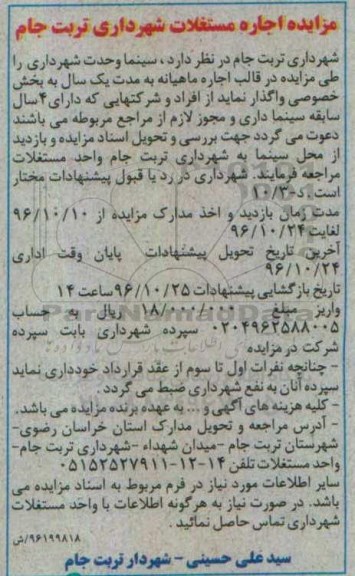 مزایده اجاره مستغلات شهرداری تربت جام
شهرداری تربت جام در نظر دارد ، سینما وحدت شهرداری را
طی مزایده در قالب اجاره ماهیانه به مدت یک سال به بخش
خصوصی واگذار نماید از افراد و شرکتهایی که دارای ۴ سال
سابقه سینما داری و مجوز لازم از مراجع مربوطه می باشند
دعوت می گردد جهت بررسی و تحویل اسناد مزایده و بازدید
از محل سینما به شهرداری تربت جام واحد مستغلات
مراجعه فرمایند. شهرداری در رد یا قبول پیشنهادات مختار
است. د-۱۰/۳۰
مدت زمان بازدید و اخذ مدارک مزایده از ۹۶/۱۰/۱۰
لغایت ۹۶/۱۰/۲۴
آخرین تاریخ تحویل پیشنهادات پایان وقت اداری
۹۶/۱۰/۲۴
تاریخ بازگشایی پیشنهادات ۹۶/۱۰/۲۵ ساعت ۱۴
واریز مبلغ ۱۸/۰۰۰/۰۰۰ ریال به حساب
۰۲۰۴۹۶۲۵۸۸۰۰۵ سپرده شهرداری بابت سپرده
شرکت در مزایده
- چنانچه نفرات اول تا سوم از عقد قرارداد خودداری نماید
سپرده آنان به نفع شهرداری ضبط می گردد .
- کلیه هزینه های آگهی و ... به عهده برنده مزایده می باشد.
- آدرس مراجعه و تحویل مدارک استان خراسان رضوی-
شهرستان تربت جام -میدان شهداء -شهرداری تربت جام-
واحد مستغلات تلفن ۱۴-۱۲-۰۵۱۵۲۵۲۷۹۱۱
سایر اطلاعات مورد نیاز در فرم مربوط به اسناد مزایده می
باشد. در صورت نیاز به هرگونه اطلاعات با واحد مستغلات
شهرداری تماس حاصل نمائید .
۹۶۱۹۹۸۱۸/ش
سید علی حسینی - شهردار تربت جام